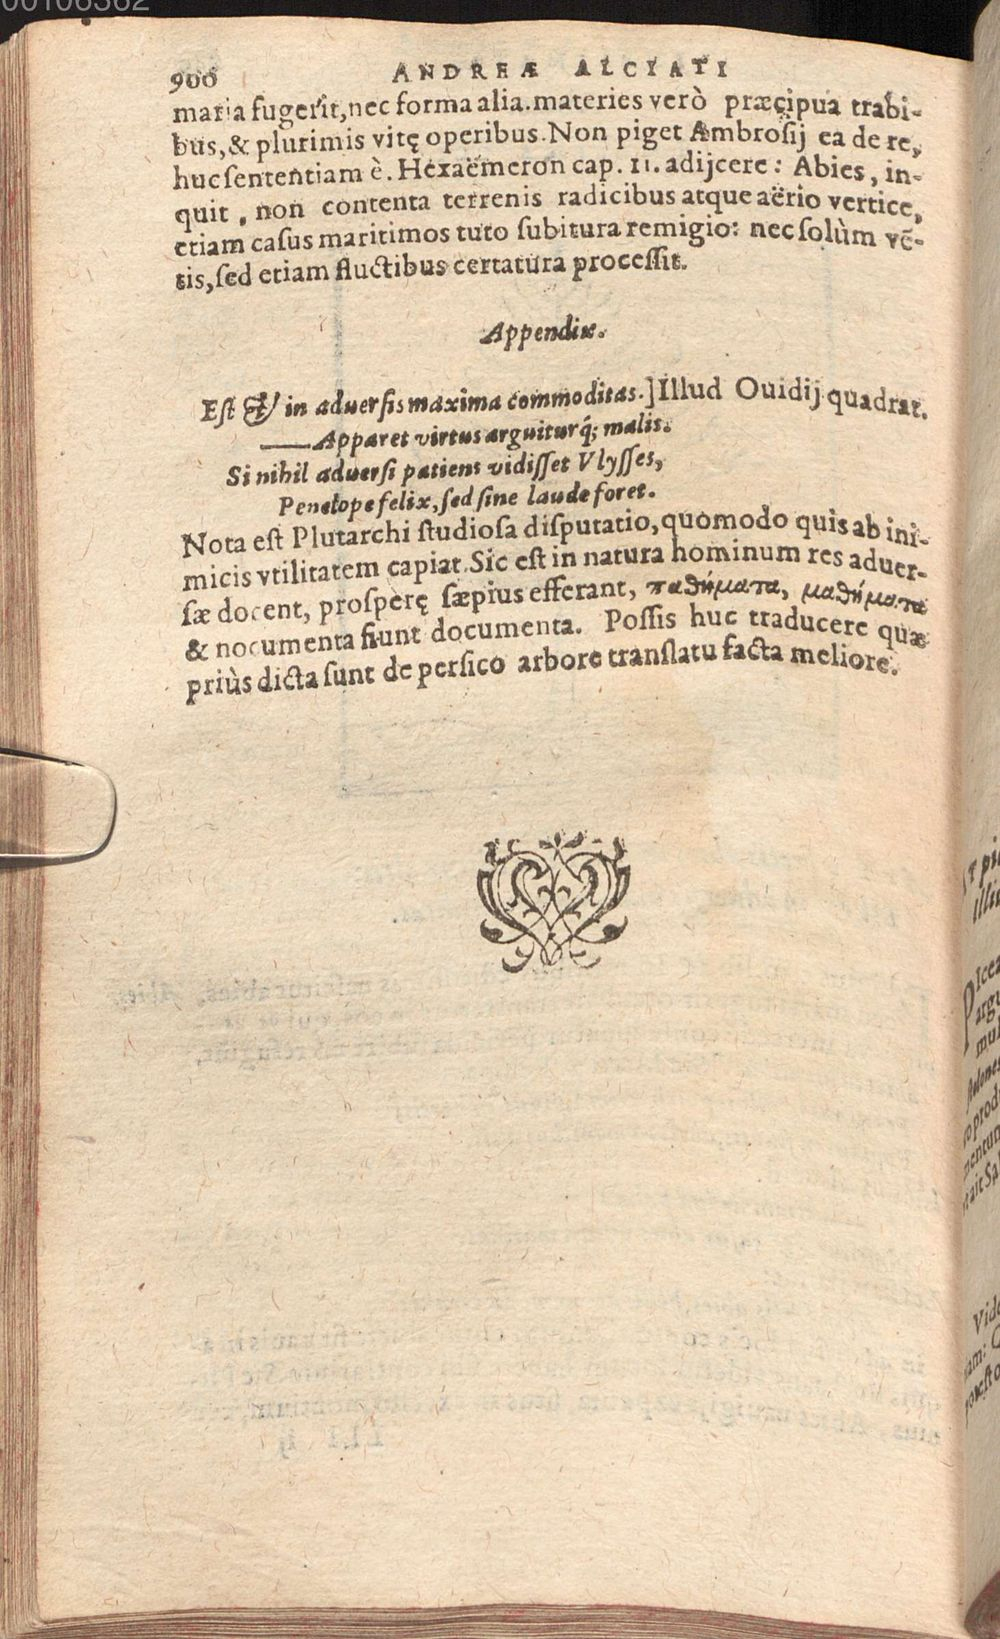 00106362
900 ANDREÆ ALCIATI
maria fugerit, nec forma alia. materies verò præcipua trabi-
bus, & plurimis vitę operibus. Non piget Ambrosij ea de re,
huc sententiam è. Hexaëmeron cap. 11. adijcere: Abies, in-
quit, non contenta terrenis radicibus atque aërio vertice,
etiam casus maritimos tuto subitura remigio: nec solùm vē-
tis, sed etiam fluctibus certatura processit.
Appendix.
Est & in aduersis maxima commoditas.] Illud Ouidij quadrat.
—— Apparet virtus arguiturq́; malis.
Si nihil aduersi patiens vidisset Vlysses,
Penelope felix, sed sine laude foret.
Nota est Plutarchi studiosa disputatio, quomodo quis ab ini-
micis vtilitatem capiat. Sic est in natura hominum res aduer-
sæ docent, prosperę sæpius efferant, παθήματα, μαθήματα
& nocumenta fiunt documenta. Possis huc traducere quæ
priùs dicta sunt de persico arbore translatu facta meliore.